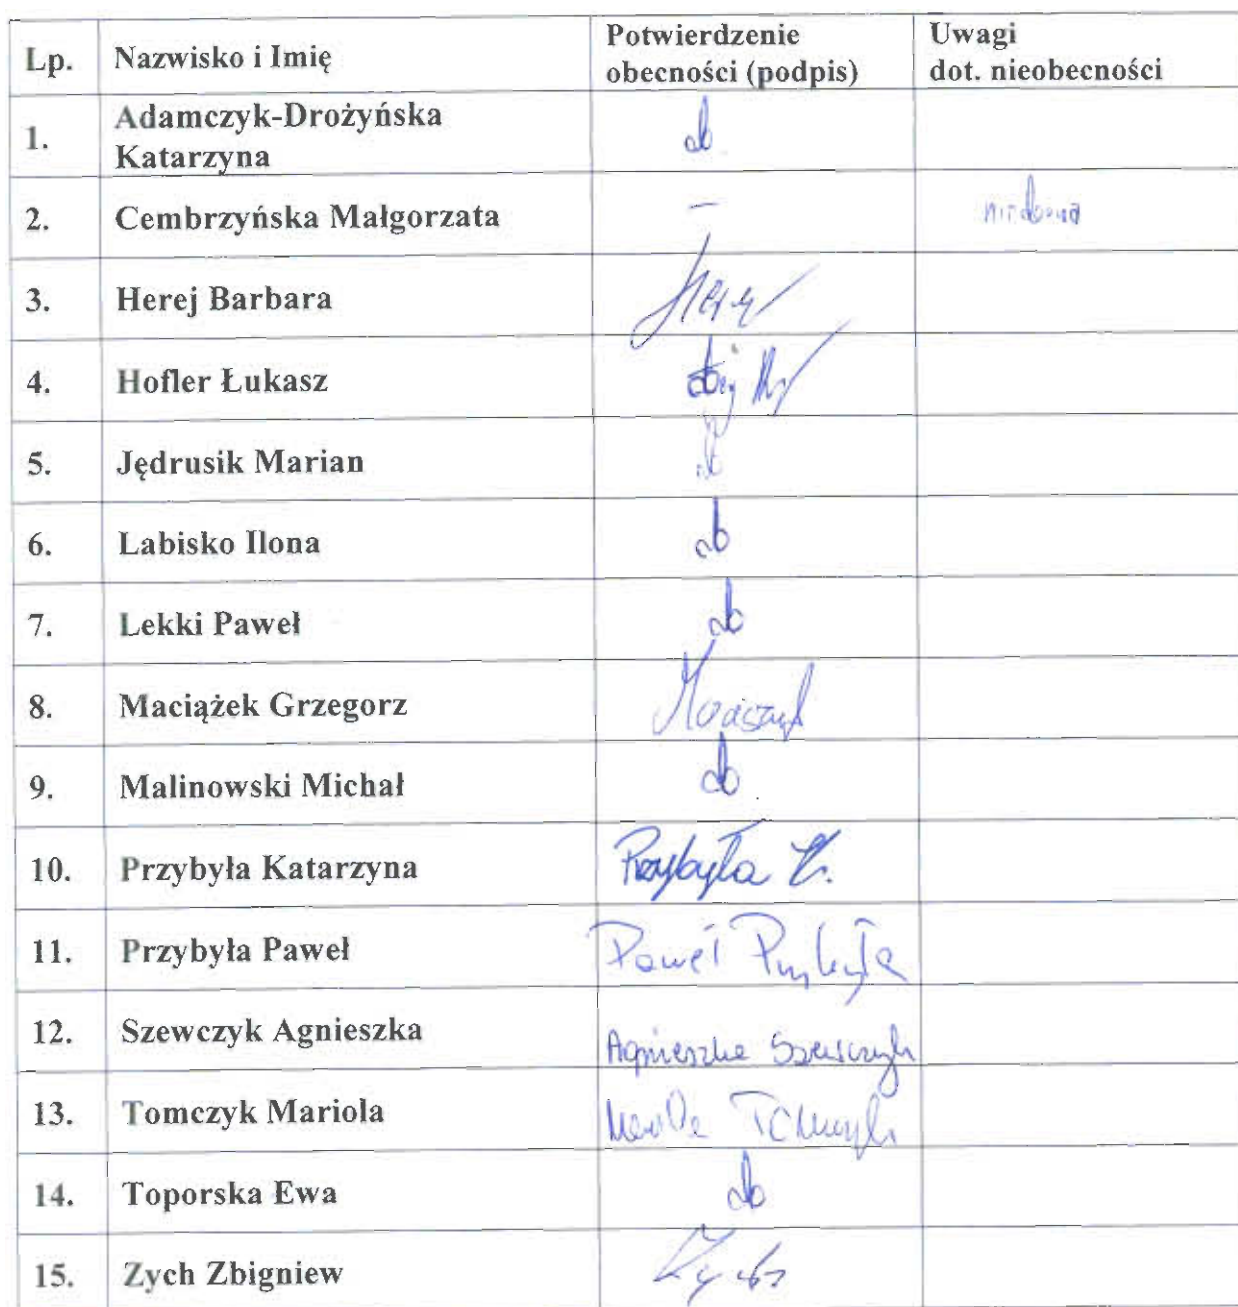 Lp. Nazwisko i Imię Potwierdzenie obecności (podpis) Uwagi dot. nieobecności
1. Adamczyk-Drożyńska Katarzyna ob
2. Cembrzyńska Małgorzata –
3. Herej Barbara Herej
4. Hofler Łukasz
5. Jędrusik Marian
6. Labisko Ilona ob
7. Lekki Paweł ob
8. Maciążek Grzegorz
9. Malinowski Michał ob
10. Przybyła Katarzyna Przybyła K.
11. Przybyła Paweł Paweł Przybyła
12. Szewczyk Agnieszka Agnieszka Szewczyk
13. Tomczyk Mariola Mariola Tomczyk
14. Toporska Ewa ob
15. Zych Zbigniew Zych